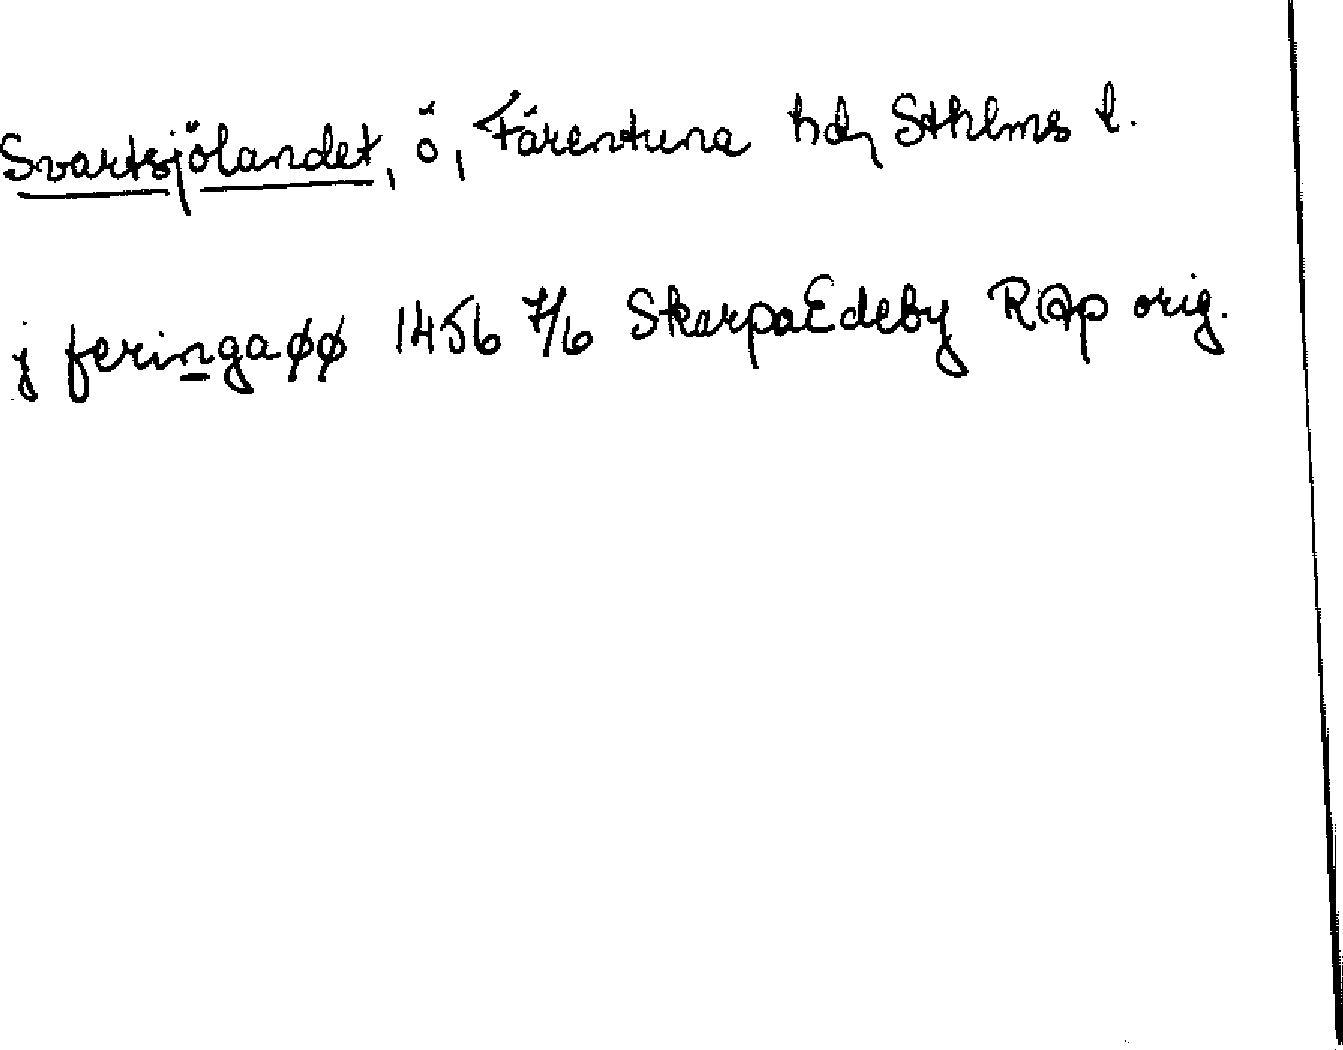 Svartsjölandet, ö, Färentuna hd, Sthlms l.
j feringaøø 1456 7/6 SkarpaEdeby RAp orig.